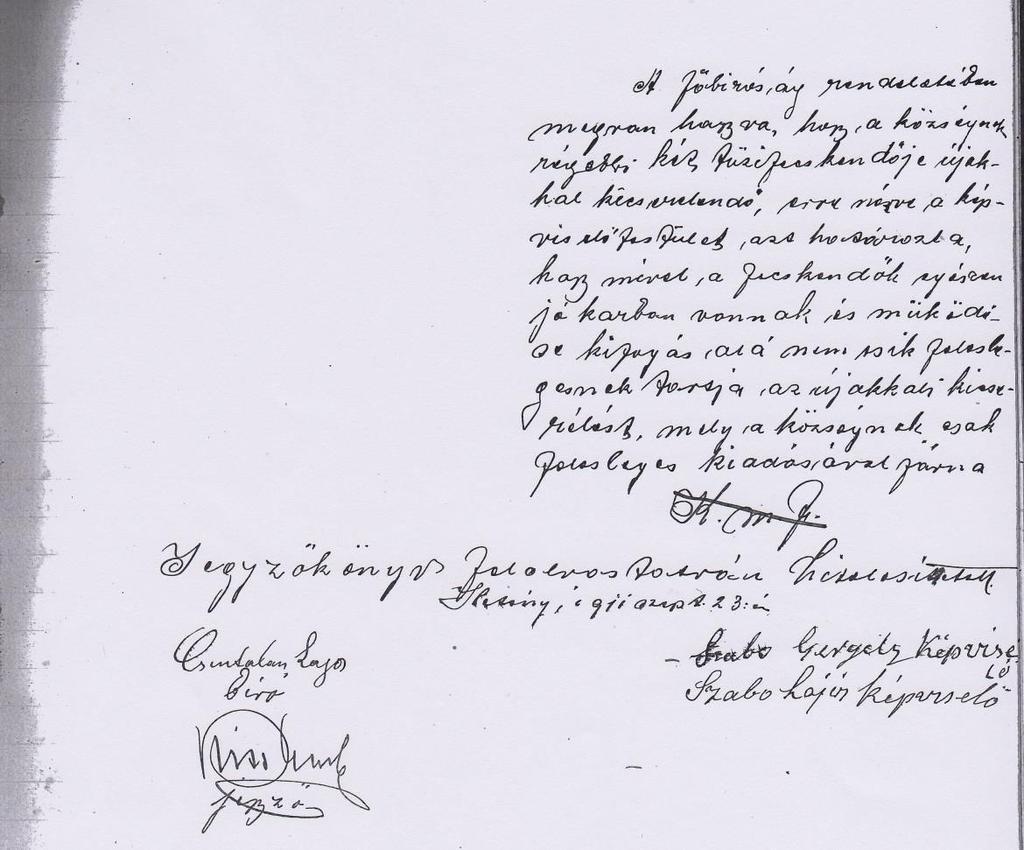 A főbíróság rendeletében
megvan hagyva, hogy a községnek
régebbi két tűzifecskendője újak-
kal kicserélendő, erre nézve a kép-
viselőtestület azt határozta,
hogy mivel a fecskendők egészen
jó karban vannak és működé-
se kifogás alá nem esik feles-
gesnek tartja az újakkali kicse-
rélést, mely a községnek csak
felesleges kiadásával járna
K. m. f.
Jegyzőkönyv felolvastatván hitelesíttetett.
szept. 23.-án
Csentalan Lajos
bíró
Szabo Gergely Képvise
lő
Szabo Lajos képviselő
Kiss
jegyző